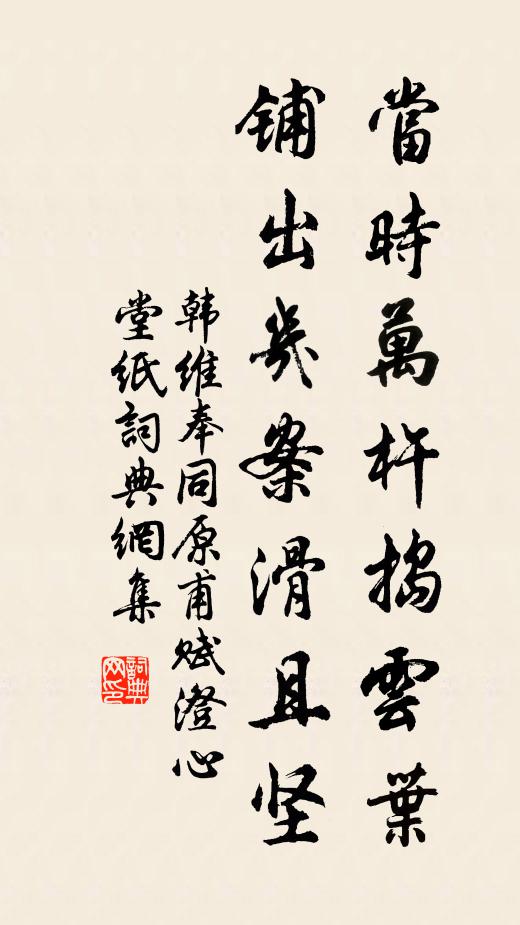 當時萬杵搗雲葉
铺出幾案滑且坚
韩維奉同原甫赋澄心
堂紙詞典網集
詞典網印